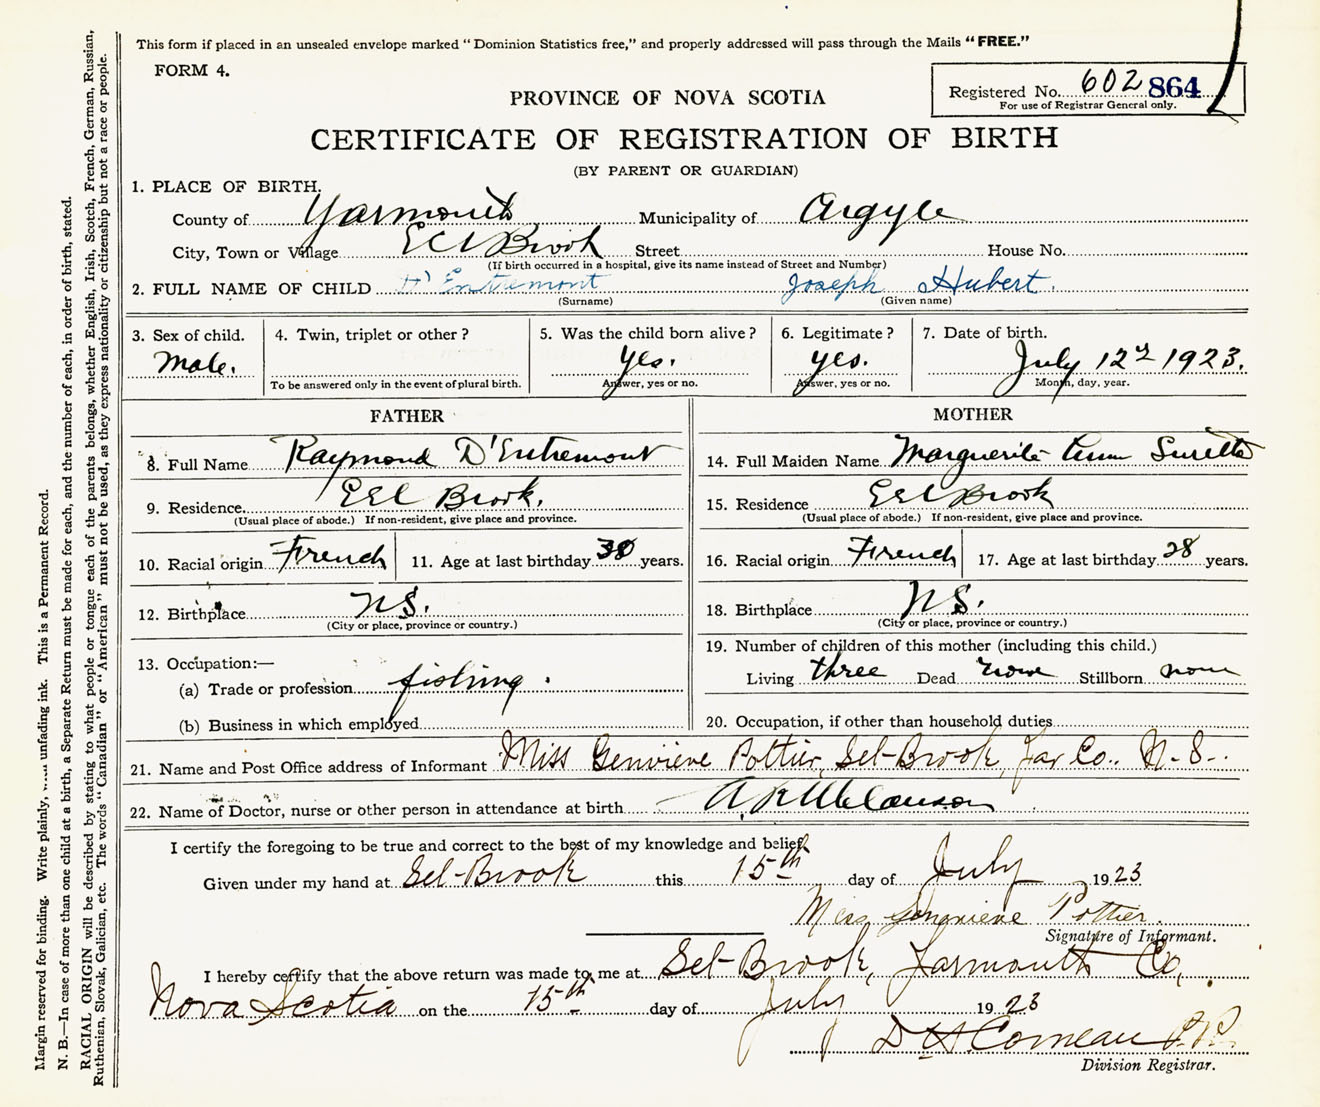 This form if placed in an unsealed envelope marked "Dominion Statistics free," and properly addressed will pass through the Mails "FREE."
FORM 4.
Registered No. 602 864
For use of Registrar General only.
PROVINCE OF NOVA SCOTIA
CERTIFICATE OF REGISTRATION OF BIRTH
(BY PARENT OR GUARDIAN)
1. PLACE OF BIRTH.
County of Yarmouth Municipality of Argyle
City, Town or Village Eel Brook Street House No.
(If birth occurred in a hospital, give its name instead of Street and Number)
2. FULL NAME OF CHILD D'Entremont Joseph Hubert.
(Surname) (Given name)
3. Sex of child. 4. Twin, triplet or other? 5. Was the child born alive? 6. Legitimate? 7. Date of birth.
Male. yes. yes. July 12th 1923.
To be answered only in the event of plural birth. Answer, yes or no. Answer, yes or no. Month, day, year.
FATHER
8. Full Name Raymond D'Entremont
9. Residence. Eel Brook.
(Usual place of abode.) If non-resident, give place and province.
10. Racial origin French 11. Age at last birthday 30 years.
12. Birthplace N.S.
(City or place, province or country.)
13. Occupation:—
(a) Trade or profession fishing.
(b) Business in which employed
MOTHER
14. Full Maiden Name Marguerite Ann Surette
15. Residence Eel Brook
(Usual place of abode.) If non-resident, give place and province.
16. Racial origin French 17. Age at last birthday 28 years.
18. Birthplace N.S.
(City or place, province or country.)
19. Number of children of this mother (including this child.)
Living three Dead none Stillborn none
20. Occupation, if other than household duties
21. Name and Post Office address of Informant Miss Genvieve Pottier, Eel-Brook, Yar Co., N.S.
22. Name of Doctor, nurse or other person in attendance at birth A R Melanson
I certify the foregoing to be true and correct to the best of my knowledge and belief.
Given under my hand at Eel-Brook this 15th day of July 1923
Miss Genevieve Pottier.
Signature of Informant.
I hereby certify that the above return was made to me at Eel-Brook, Yarmouth Co,
Nova Scotia on the 15th day of July 1923
D H Comeau
Division Registrar.
Margin reserved for binding. Write plainly, unfading ink. This is a Permanent Record.
N. B.—In case of more than one child at a birth, a Separate Return must be made for each, and the number of each, in order of birth, stated.
RACIAL ORIGIN will be described by stating to what people or tongue each of the parents belongs, whether English, Irish, Scotch, French, German, Russian,
Ruthenian, Slovak, Galician, etc. The words "Canadian" or "American" must not be used, as they express nationality or citizenship but not a race or people.